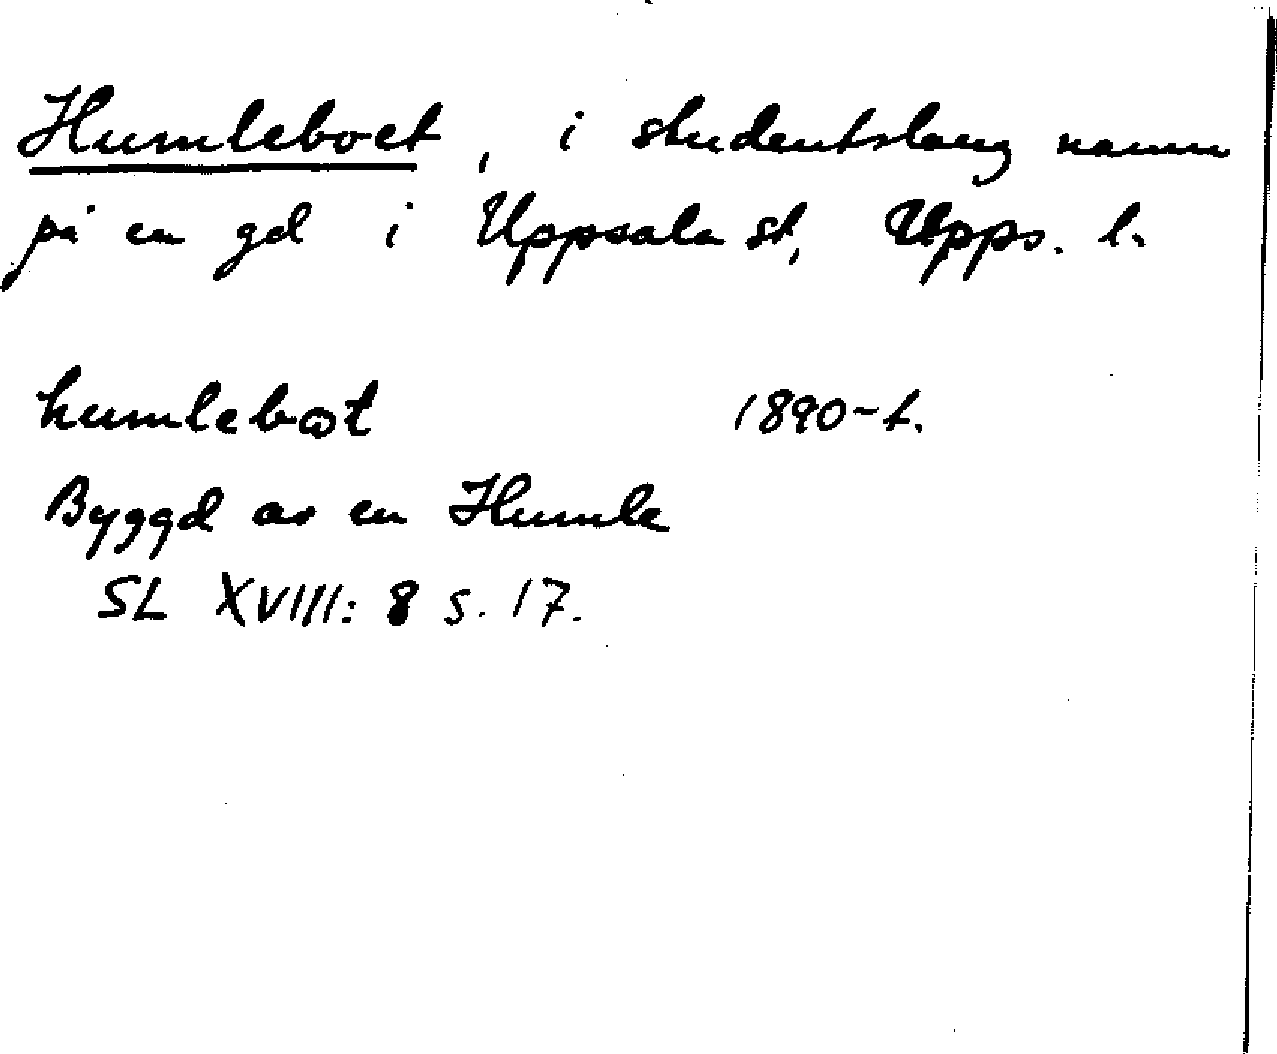 Humleboet, i studentslang namn
på en gd i Uppsala st, Upps. l.
humleboet 1890-t.
Byggd av en Humle
SL XVIII: 8 s. 17.